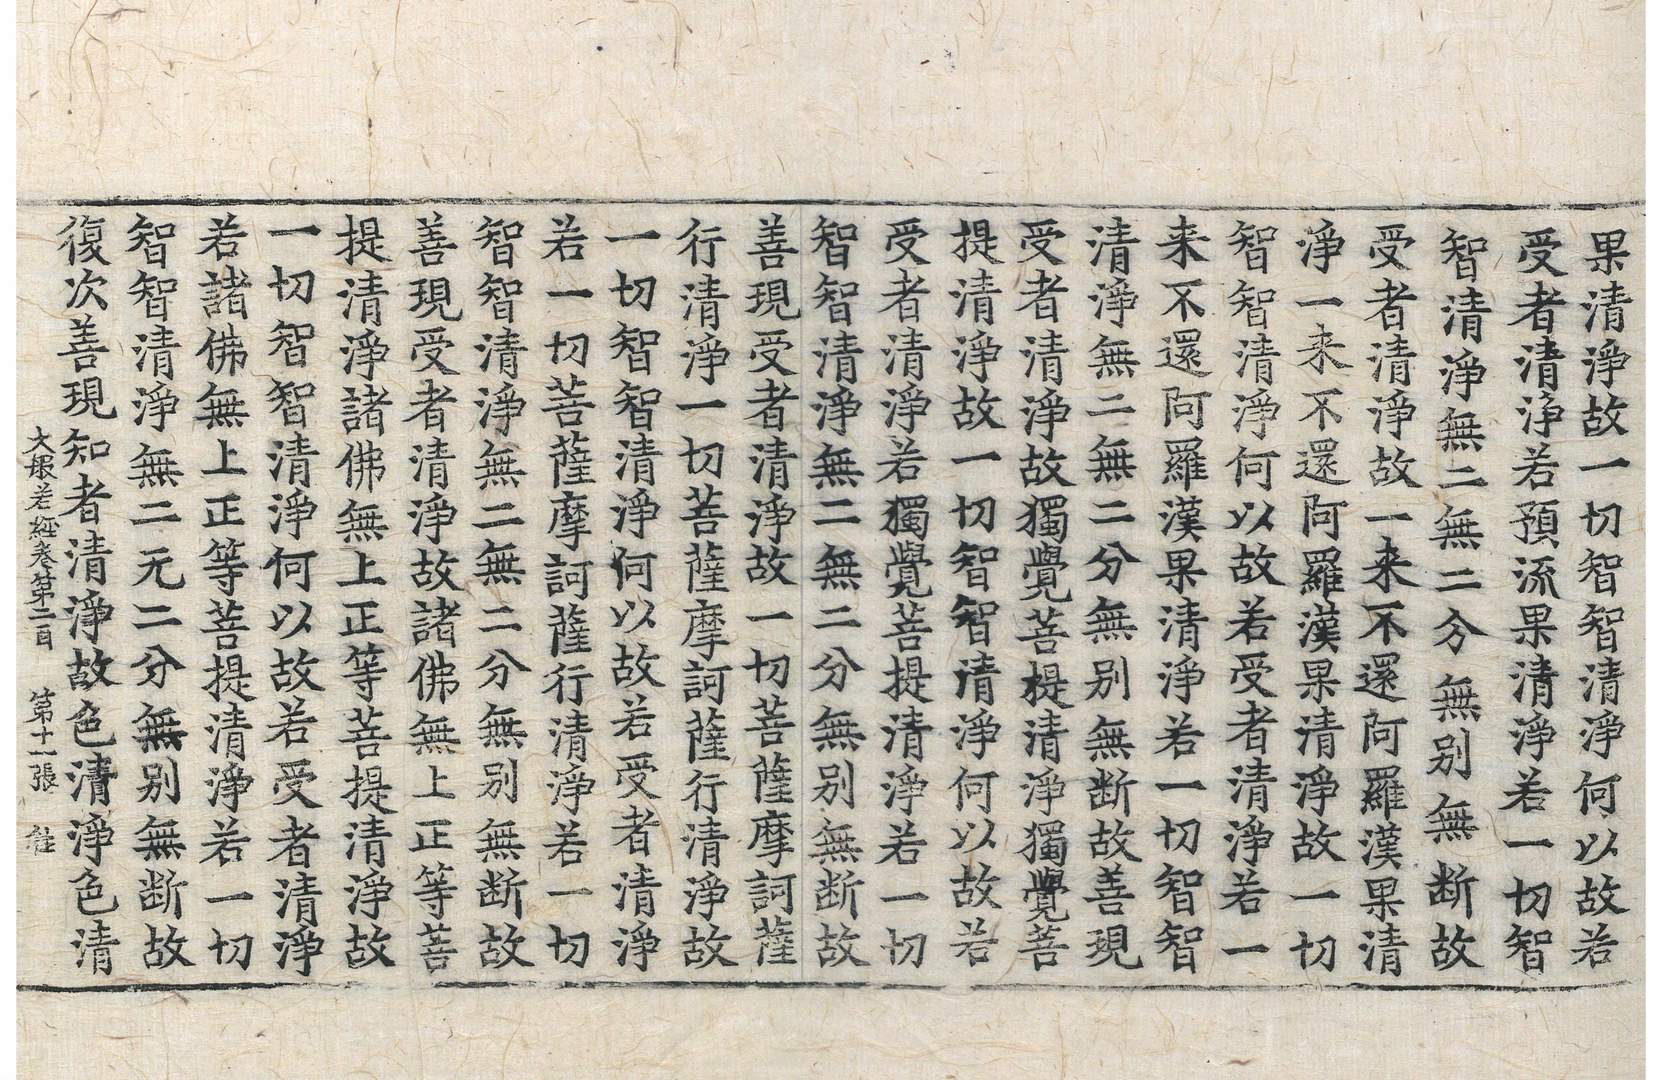 果清淨故一切智智清淨何以故若
受者清淨若預流果清淨若一切智
智清淨無二無二分無别無断故
受者清淨故一来不還阿羅漢果清
淨一来不還阿羅漢果清淨故一切
智智清淨何以故若受者清淨若一
来不還阿羅漢果清淨若一切智智
清淨無二無二分無别無断故善現
受者清淨故獨覺菩提清淨獨覺菩
提清淨故一切智智清淨何以故若
受者清淨若獨覺菩提清淨若一切
智智清淨無二無二分無别無断故
善現受者清淨故一切菩薩摩訶薩
行清淨一切菩薩摩訶薩行清淨故
一切智智清淨何以故若受者清淨
若一切菩薩摩訶薩行清淨若一切
智智清淨無二無二分無别無断故
善現受者清淨故諸佛無上正等菩
提清淨諸佛無上正等菩提清淨故
一切智智清淨何以故若受者清淨
若諸佛無上正等菩提清淨若一切
智智清淨無二元二分無别無断故
復次善現知者清淨故色清淨色清
大般若經卷第二百 第十一張